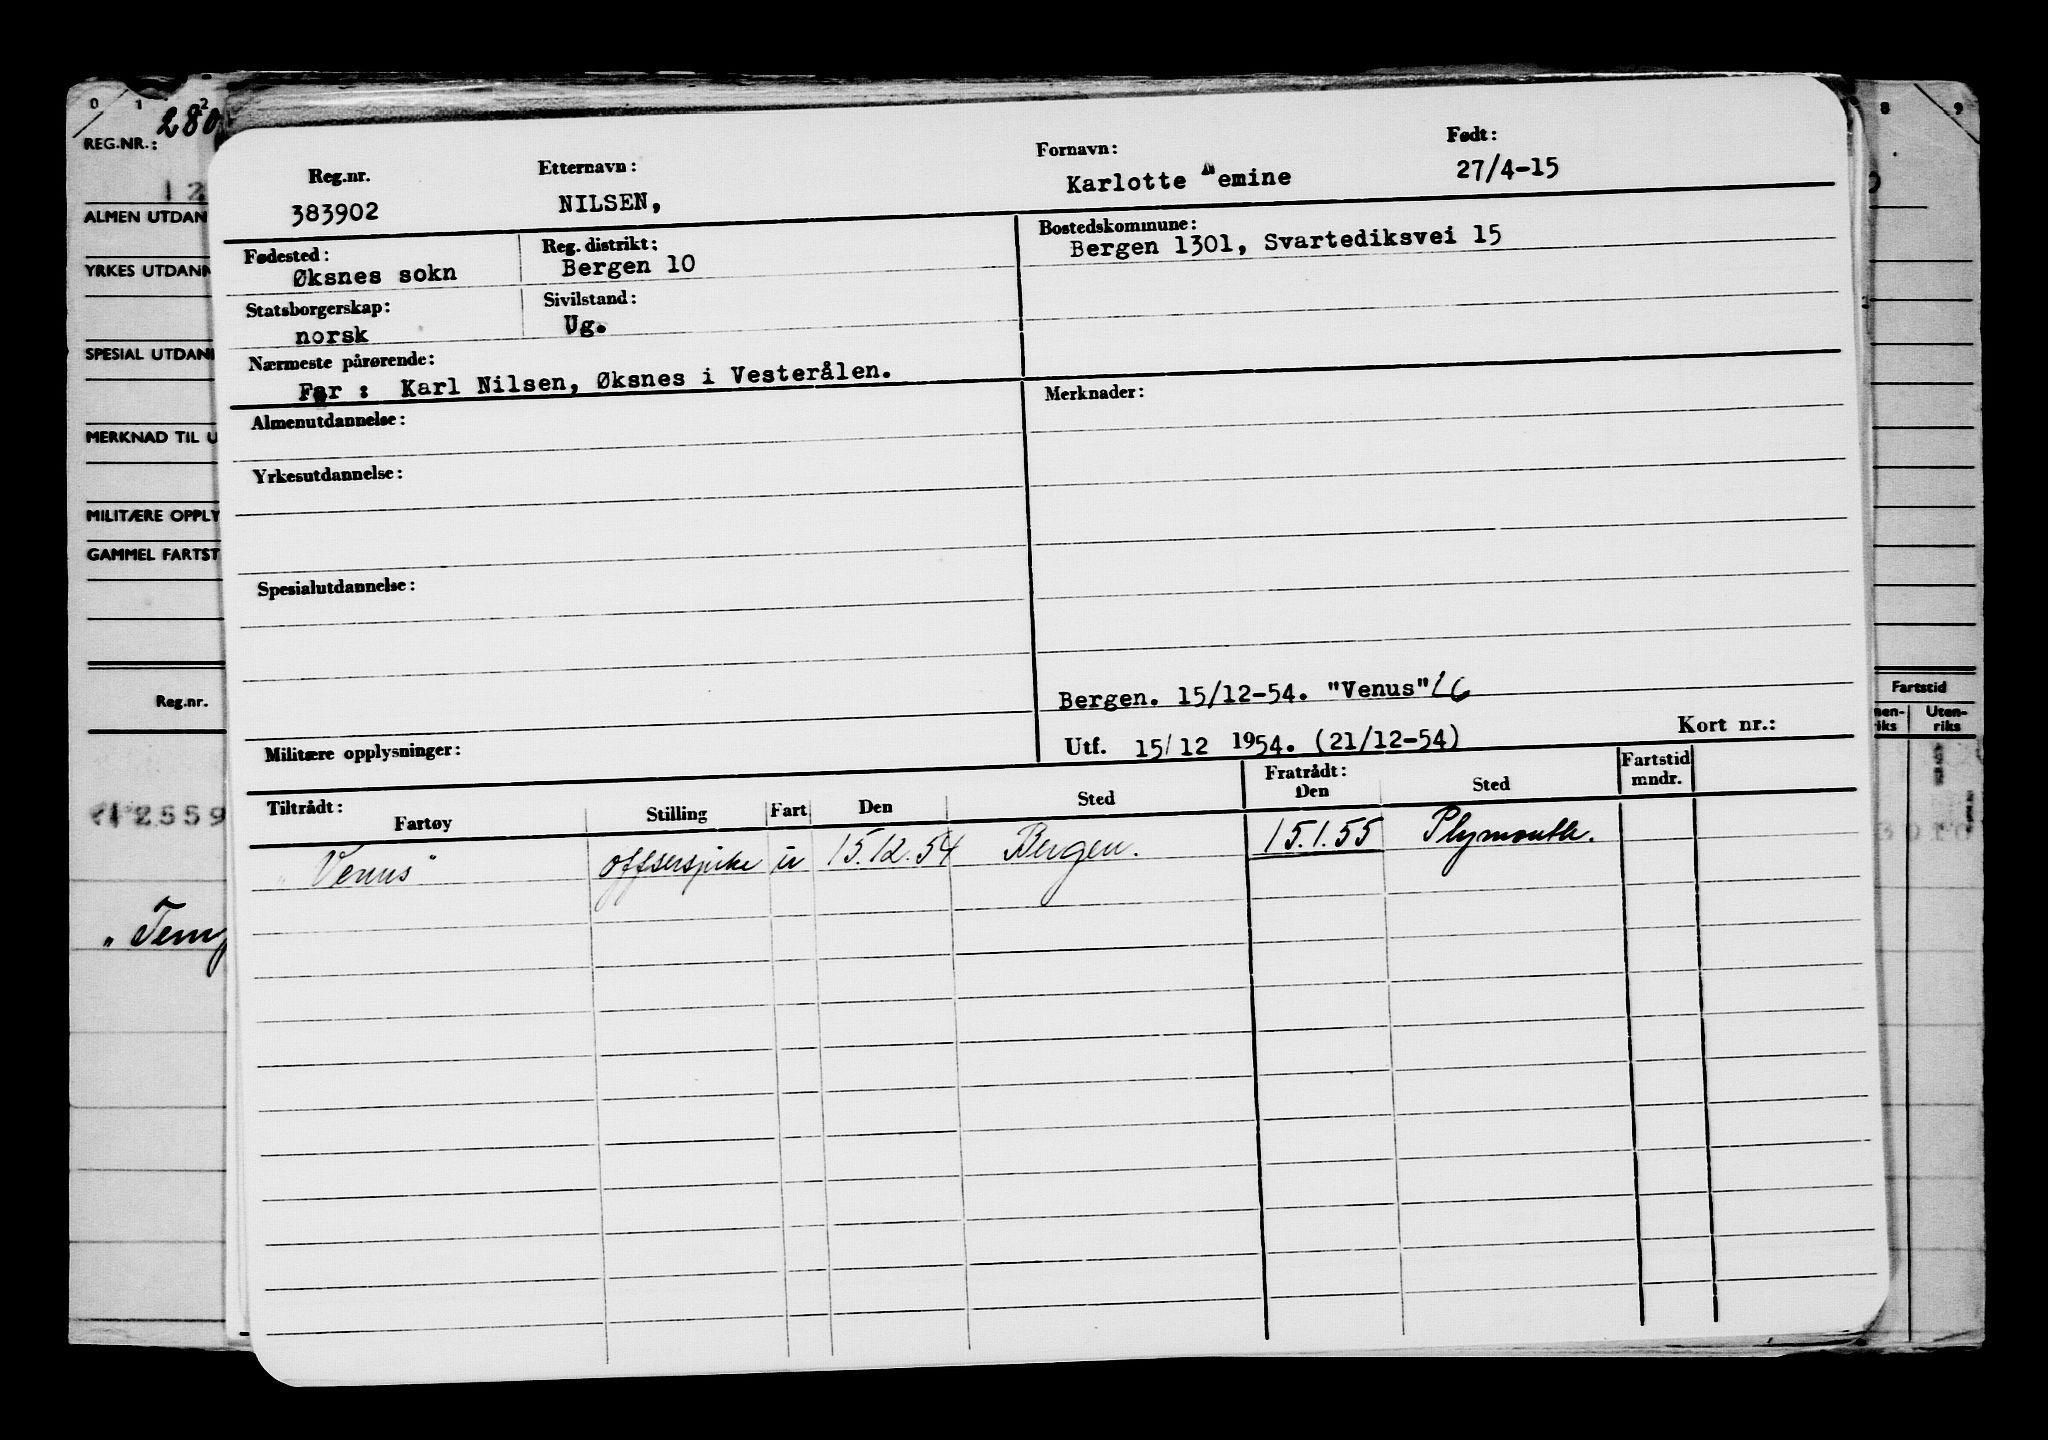 0 1 2
280
REG.NR.:
12
ALMEN UTDAN
YRKES UTDANN
SPESIAL UTDANN
MERKNAD TIL U
MILITÆRE OPPLY
GAMMEL FARTST
Reg.nr.
2559
"Temp
Reg.nr. Etternavn: Fornavn: Født:
383902 NILSEN, Karlotte emine 27/4-15
Fødested: Reg. distrikt: Bostedskommune:
Øksnes sokn Bergen 10 Bergen 1301, Svartediksvei 15
Statsborgerskap: Sivilstand:
norsk Ug.
Nærmeste pårørende:
Far : Karl Nilsen, Øksnes i Vesterålen.
Almenutdannelse: Merknader:
Yrkesutdannelse:
Spesialutdannelse:
Bergen. 15/12-54. "Venus"
Militære opplysninger: Utf. 15/12 1954. (21/12-54) Kort nr.:
Tiltrådt: Fratrådt: Fartstid
Fartøy Stilling Fart Den Sted Den Sted mndr.
"Venus" offserspike u 15.12.54 Bergen. 15.1.55 Plymouth.
8 9
Fartstid
nen- Uten-
iks riks